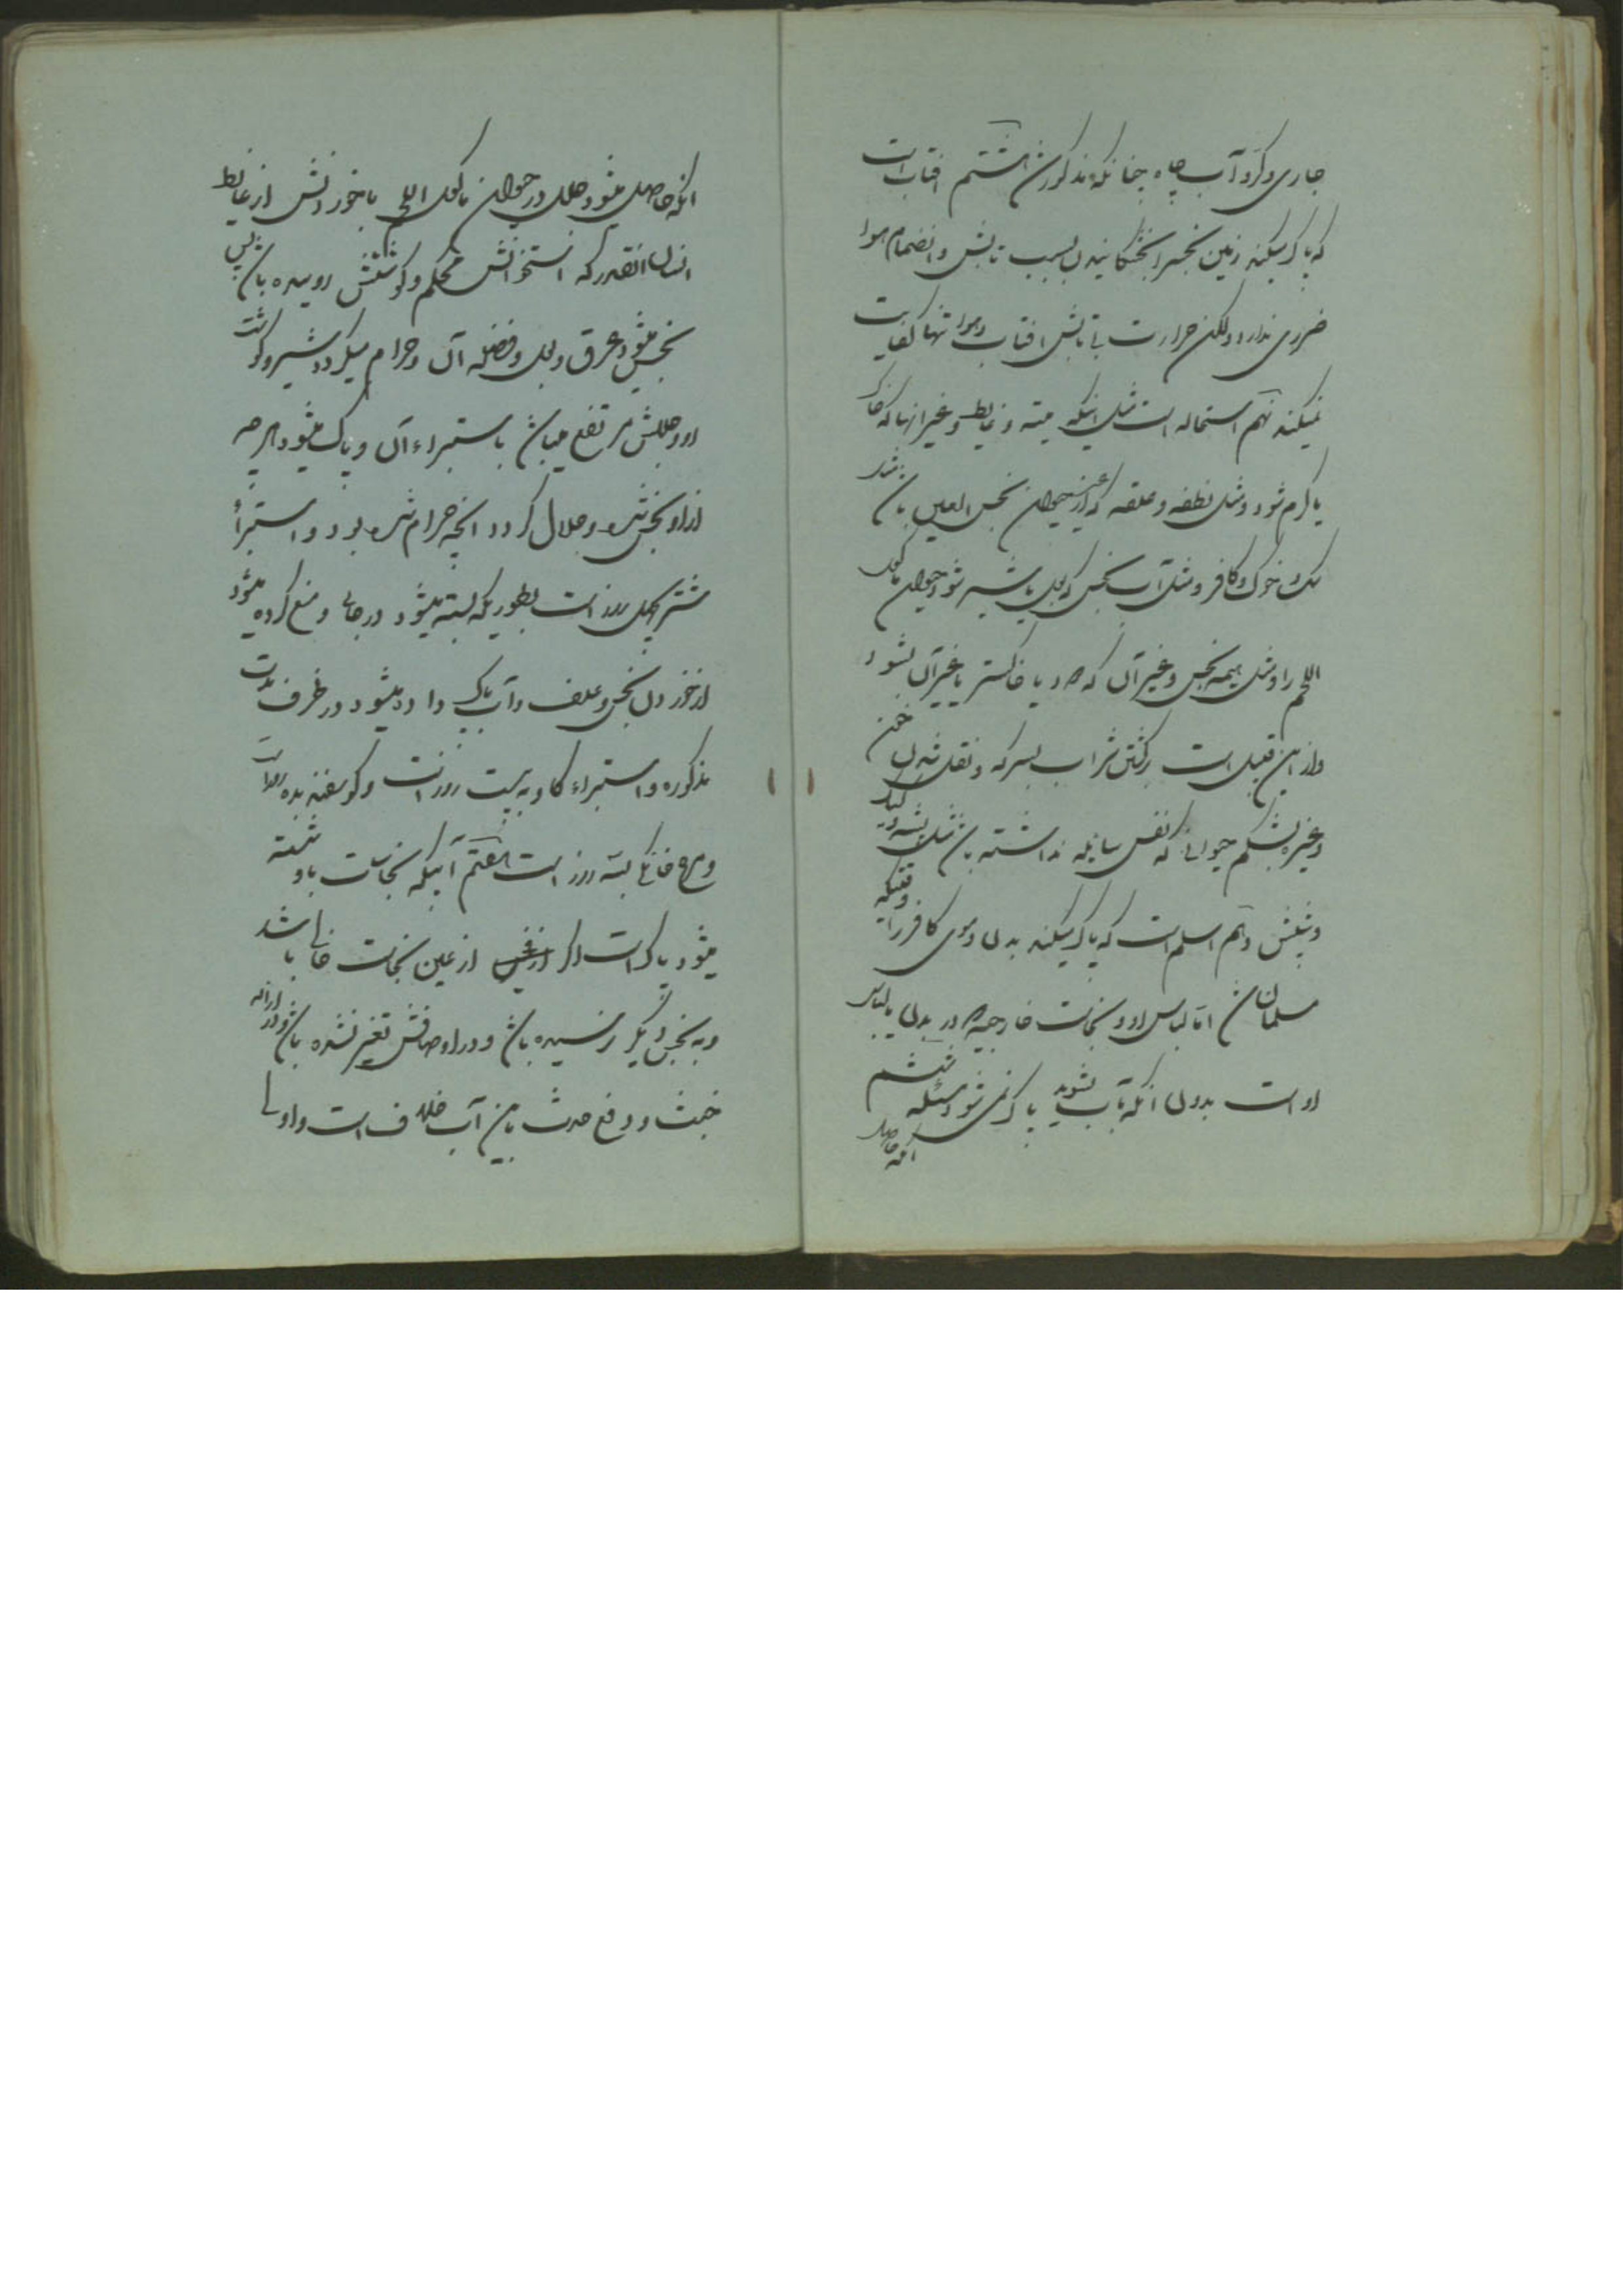 جاری و کر و آب چاه چنانکه مذکور شد هشتم افتاب است
که پاک میکند زمین نجس را بخشکانیدن بسبب تابش و انضمام هوا
ضرری ندارد ولکن حرارت بی تابش افتاب و هوا تنها کفایت
نمیکند نهم استحاله است مثل اینکه میته و غایط و غیر انها که خاک
یا کرم شود و مثل نطفه و علقه که از غیر حیوان نجس العین باشد مانند
سک و خوک و کافر و مثل آب نجس که بول یا شیر شود حیوان ماکول
اللحم را و مثل هیمه نجس و غیر آن که دود یا خاکستر یا غیر آن بشود
و از این قبیل است برکشتن شراب بسرکه و نقل شدن خون
و غیره بشکم حیوانی که نفس سایله نداشته باشد مثل پشه و کیک
و شپش دهم اسلام است که پاک میکند بدن و موی کافر را وقتیکه
مسلمان شد اما لباس او و نجاست خارجیه که در بدن یا لباس
او است بدون انکه بآب بشوید پاک نمی شود مسئله ششم
انچه حاصل
انکه حاصل میشود جلل در حیوان ماکول اللحم بخوردنش از غایط
انسان انقدر که استخوانش محکم و کوشتش روییده باشد پس
نجس میشود عرق و بول و فضله آن و حرام میکردد شیر و کوشت
او و جللش مرتفع میباشد باستبراء آن و پاک میشود هر چه
از او نجس شده و حلال کردد انچه حرام شده بود و استبرأ
شتر چهل روز است بطوریکه بسته میشود در جایی و منع کرده میشود
از خوردن نجس و علف و آب پاک داده میشود در ظرف مدت
مذکوره و استبراء کاو به بیست روز است و کوسفند بده روز است
و مرغ خانکی بسه روز است هفتم آبیکه نجاست باو شسته
میشود پاک است اکر از عین نجاست خالی باشد
و به نجس دیکر نرسیده باشد و در اوصافش تغیر نشده باشد و در ازاله
خبث و رفع حدث باین آب خلاف است و اولی